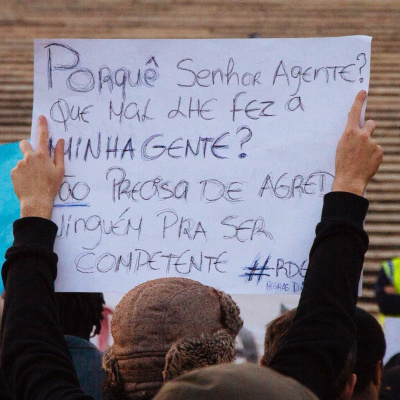 Porquê Senhor Agente?
Que mal lhe fez a
minha gente?
Não precisa de agred
ninguém pra ser
competente #RDE